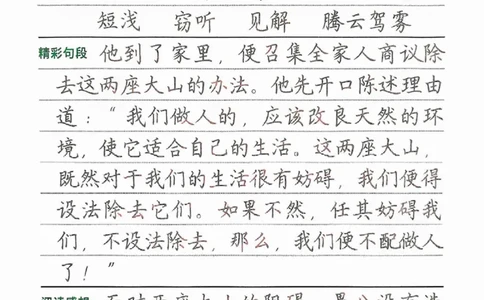 短浅 窃听 见解 腾云驾雾
精彩句段 他到了家里，便召集全家人商议除
去这两座大山的办法。他先开口陈述理由
道：“我们做人的，应该改良天然的环
境，使它适合自己的生活。这两座大山，
既然对于我们的生活很有妨碍，我们便得
设法除去它们。如果不然，任其妨碍我
们，不设法除去，那么，我们便不配做人
了！”